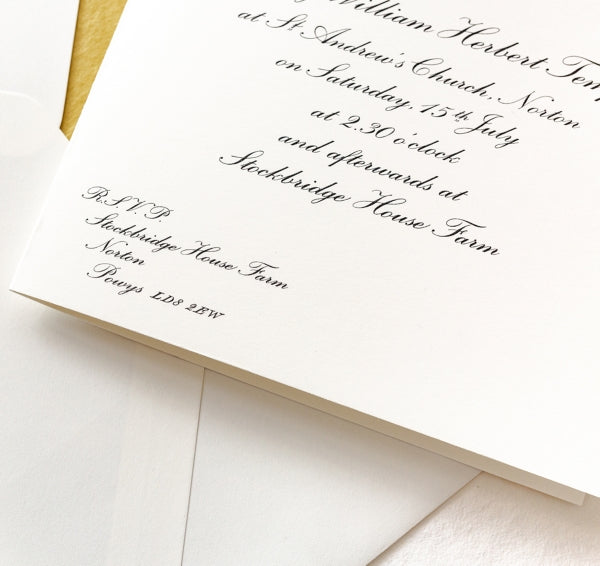 William Herbert
at St. Andrew's Church, Norton
on Saturday, 15th July
at 2.30 o'clock
and afterwards at
Stockbridge House Farm
R.S.V.P.
Stockbridge House Farm
Norton
Powys LD8 2EW